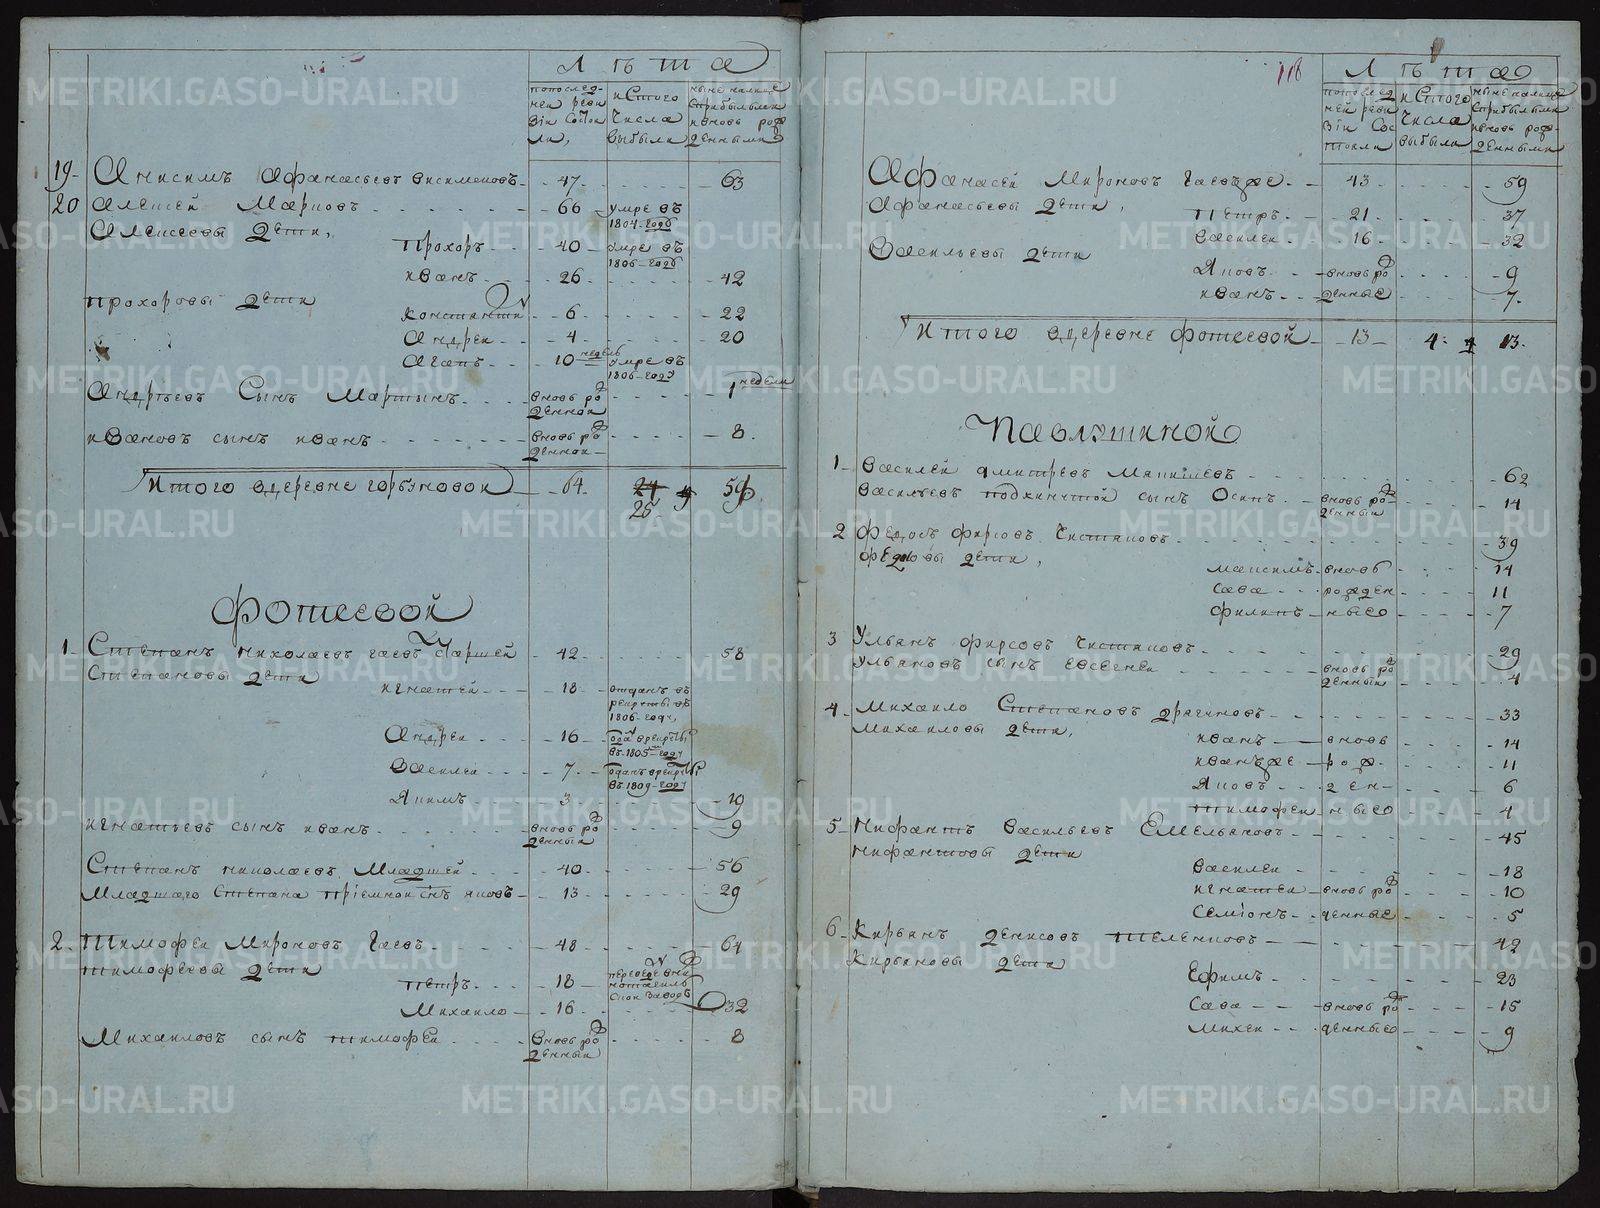 Лѣта
попослед
ней реви
зіи состоя
ли,
исього
числа
выбыли
ныне налице
сприбылыми
ивновь рож
денными
19 Анисимъ Афанасьевъ Анисимовъ 47 63
20 Алексей Марковъ 66 умре въ 1804 году
Алексеевы дети,
Прохоръ 40 умре въ 1806 году
иванъ 26 42
Прохоровы дети
Константи 6 22
Андреи 4 20
Агапъ 10 недель умре въ 1806 году
Андреевъ Сынъ Мартынъ вновь рожденнои 1 недели
ивановъ сынъ иванъ вновь рожденнои 8.
Итого вдеревне горбуновои 64. 25 9
Фотеевой
1 Степанъ николаевъ гаевъ Старшей 42 58
Степановы дети
игнатеи 18 отданъ въ рекруты въ 1806 году
Андреи 16 въ 1805 году
Василеи 7 въ 1809 году
Якимъ 3 19
игнатьевъ сынъ иванъ вновь рожденныи 9
Степанъ николаевъ Младшей 40 56
Младшаго Степана пріемнои сынъ яковъ 13 29
2 Тимофеи Мироновъ Гаевъ 48 64
тимофеевы дети
петръ 18
Михаило 16 32
Михаиловъ сынъ тимофеи вновь рожденныи 8
118
Лѣта
попослед
ней реви
зіи сос
тояли
исього
числа
выбыли
ныне налице
сприбылыми
ивновь рож
денными
Афанасей Мироновъ гаевже 43 59
Афанасьевы дети,
Петръ 21 37
Василеи 16 32
Васильевы дети
Яковъ вновь ро 9
иванъ жденные 7.
Итого вдеревне фотеевой 13 4. 13.
Павлушиной
1 Василеи дмитревъ Макишевъ 62
Васильевъ подкинутой сынъ Осипъ вновь рожденныи 14
2 Федосъ фирсовъ Чистяковъ 39
дети,
максимъ вновь 14
сава рожден 11
филипъ ныхо 7
3 Ульянъ фирсовъ Чистяковъ 29
Ульяновъ сынъ Евсегнеи вновь рожденныи 4
4 Михаило Степановъ драгиновъ 33
Михаиловы дети,
иванъ вновь 14
иванъже рож 11
Яковъ ден 6
тимофеи ныхо 4
5 Нифантъ Васильевъ Емельяновъ 45
Нифантовы дети
Василеи 18
игнатеи вновь ро 10
Семіонъ жденные 5
6 Кирьянъ денисовъ Теленковъ 42
Кирьяновы дети
Ефимъ 23
Сава вновь рож 15
Михеи 9
METRIKI.GASO-URAL.RU